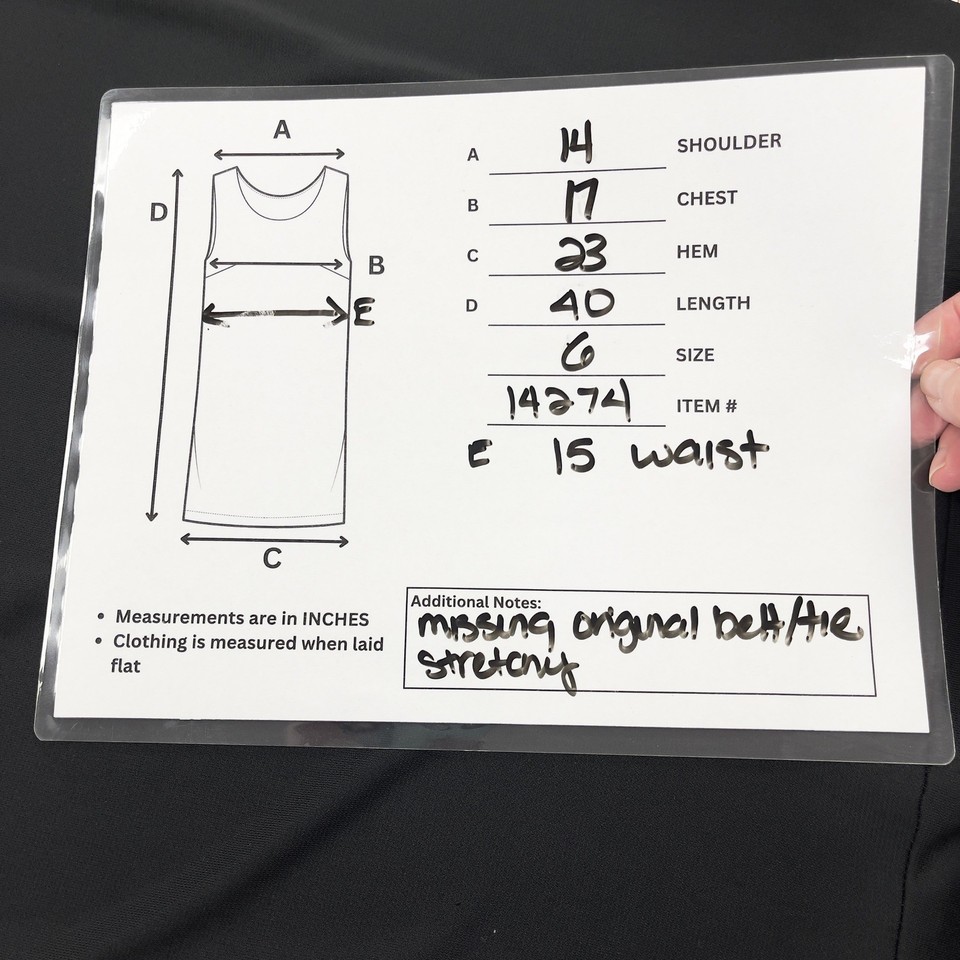 A
D
B
E
C
A 14 SHOULDER
B 17 CHEST
C 23 HEM
D 40 LENGTH
6 SIZE
14274 ITEM #
E 15 waist
• Measurements are in INCHES
• Clothing is measured when laid
flat
Additional Notes:
missing original belt/tie
stretchy